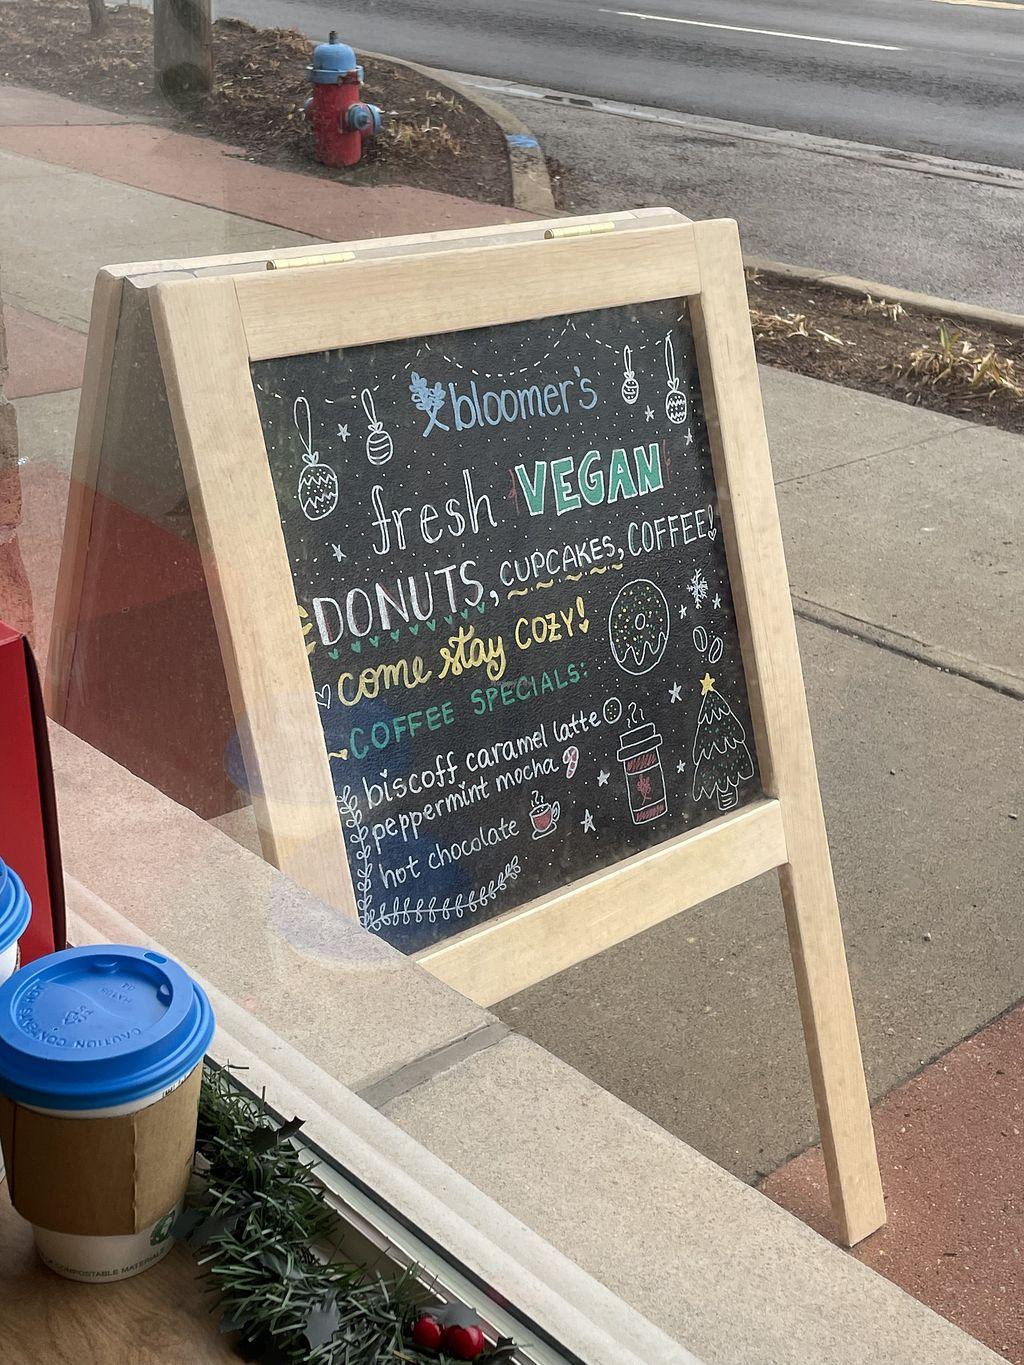 bloomer's
fresh VEGAN
DONUTS, CUPCAKES, COFFEE!
come stay COZY!
~COFFEE SPECIALS:
biscoff caramel latte
peppermint mocha
hot chocolate
CAUTION CONTENTS HOT
COMPOSTABLE MATERIAL